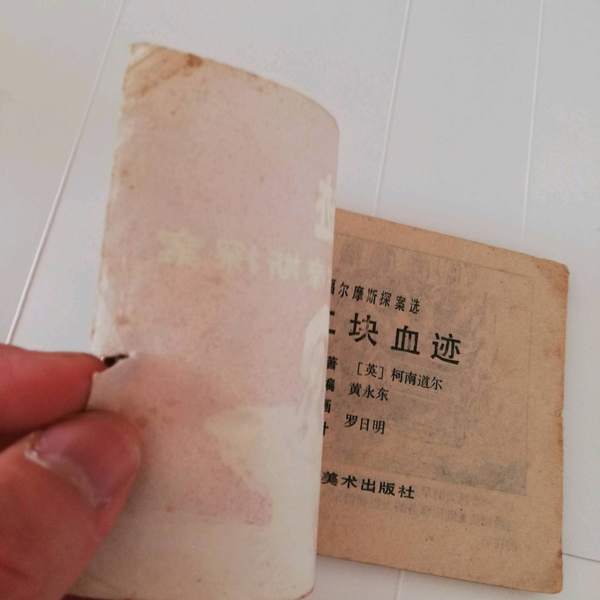 福尔摩斯探案选
块血迹
著 [英] 柯南道尔
编 黄永东
画 罗日明
美术出版社